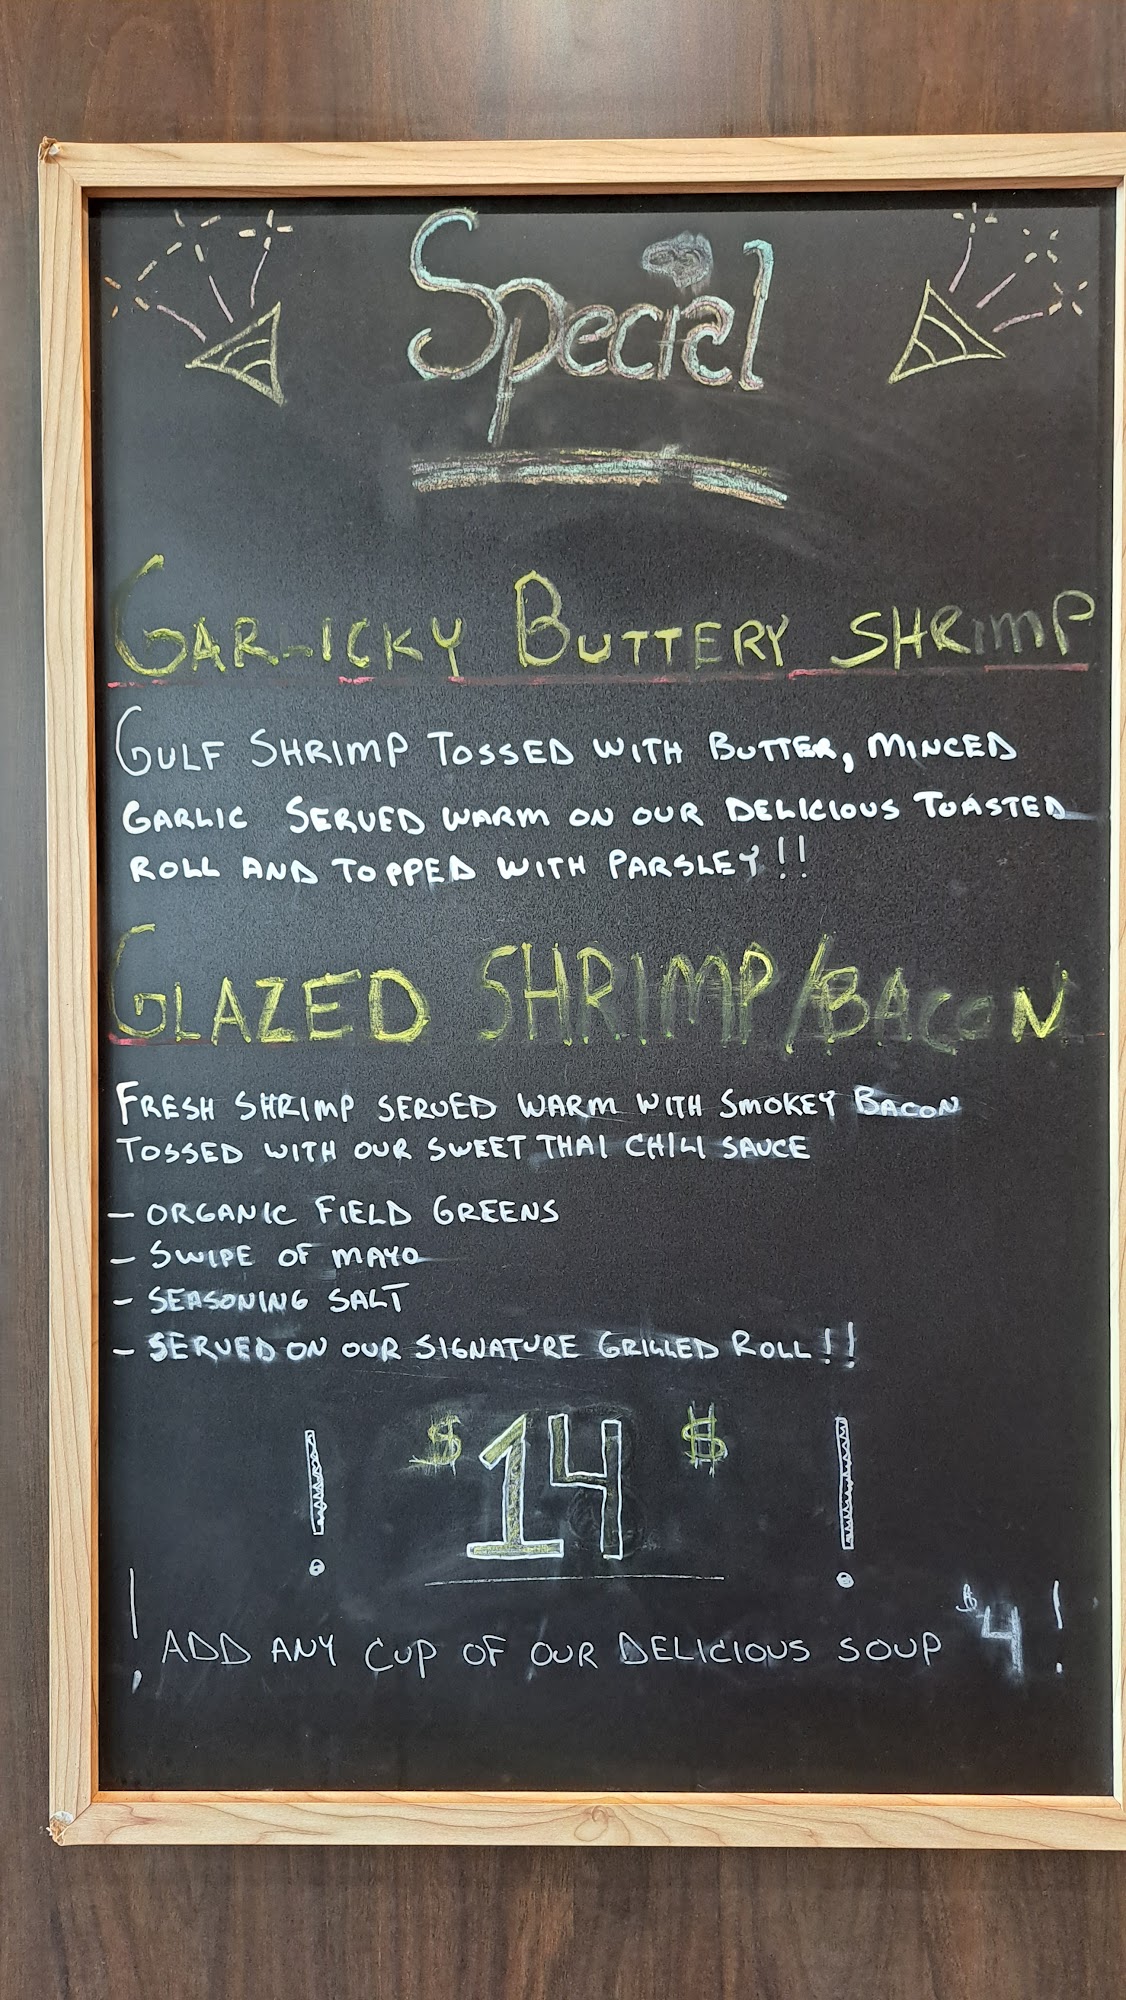 Special
GARLICKY BUTTERY SHRIMP
GULF SHRIMP TOSSED WITH BUTTER, MINCED
GARLIC SERVED WARM ON OUR DELICIOUS TOASTED
ROLL AND TOPPED WITH PARSLEY!!
GLAZED SHRIMP/BACON
FRESH SHRIMP SERVED WARM WITH SMOKEY BACON
TOSSED WITH OUR SWEET THAI CHILI SAUCE
- ORGANIC FIELD GREENS
- SWIPE OF MAYO
- SEASONING SALT
- SERVED ON OUR SIGNATURE GRILLED ROLL!!
! $14$ !
! ADD ANY CUP OF OUR DELICIOUS SOUP $4!